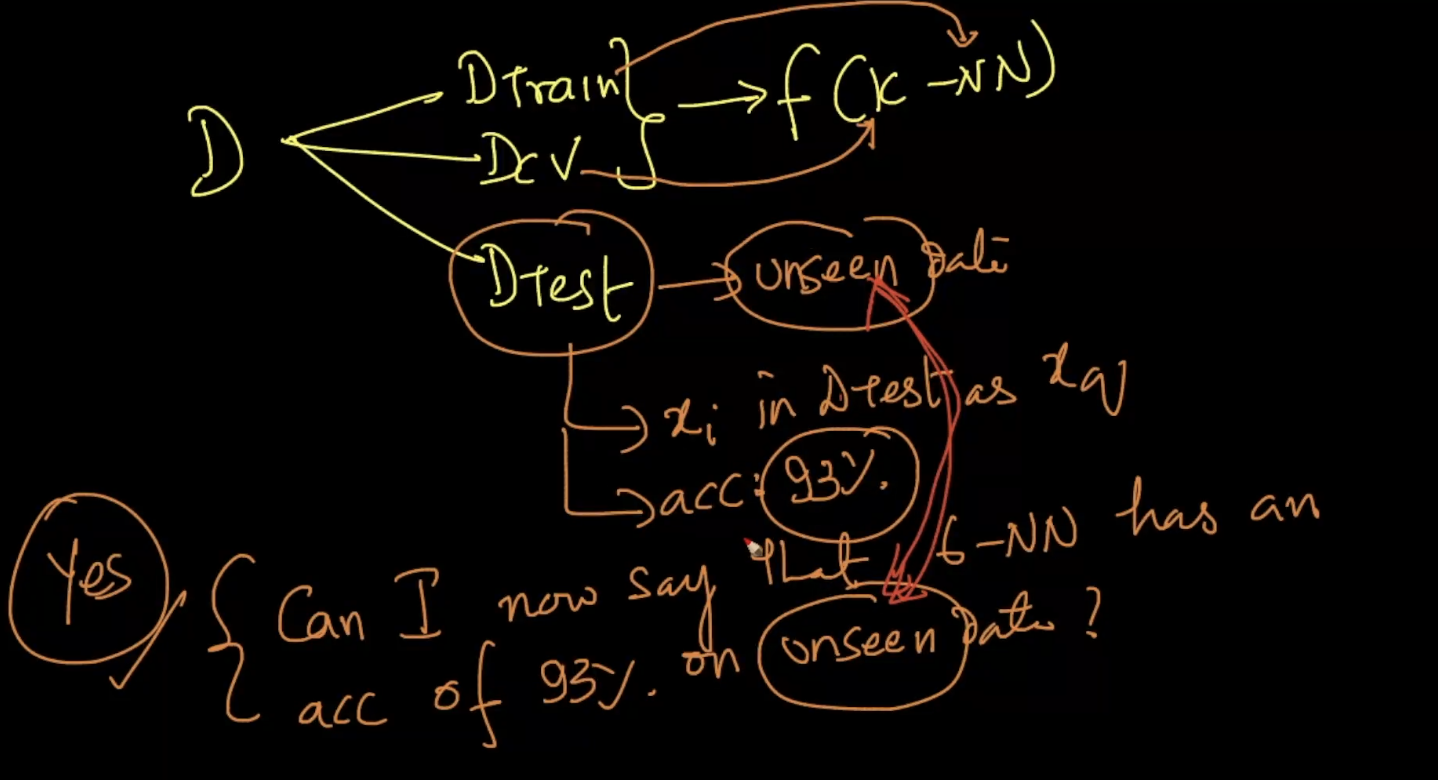 Dtrain
D
→ f(K-NN)
DCV
Dtest → unseen Data
→ xi in Dtest as xq
→ acc: 93%.
Yes
Can I now say that 6-NN has an
acc of 93%. on unseen Data?